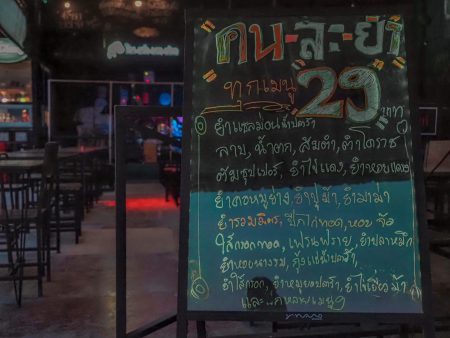 คน-ละ-ยำ
ทุกเมนู 29 บาท
ยำแซลม่อน
ลาบ, น้ำตก, ส้มตำ, ตำโคราช
ต้มซุปเปอร์, ยำไข่แดง, ยำหอยแครง
ยำคอหมูย่าง, ยำปูม้า, ยำมาม่า
ยำรวมมิตร, ปีกไก่ทอด, หอย จ้อ
ไส้กรอกทอด, เฟรนฟราย, ยำปลาหมึก
ยำหอยนางรม, กุ้งแช่น้ำปลา
ยำไส้กรอก, ยำหมูยอ, ยำไข่เยี่ยวม้า
และอีกหลายเมนูๆ